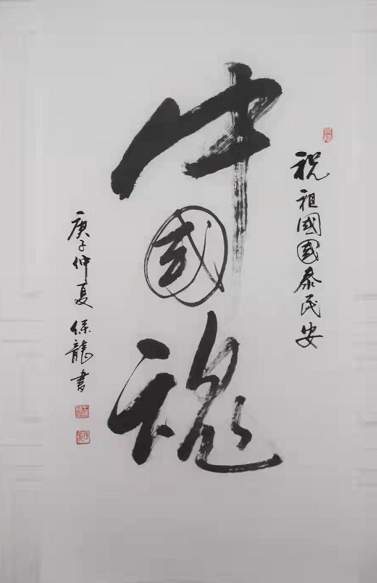 祝祖國國泰民安
中國魂
庚子仲夏孫龍書